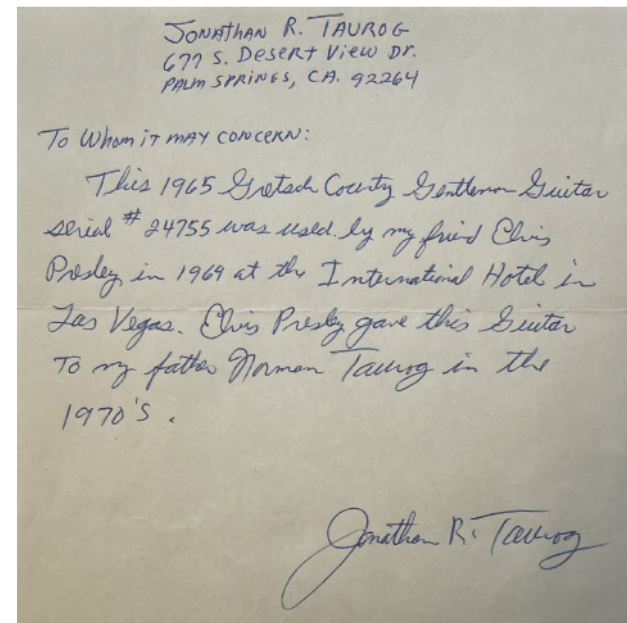 JONATHAN R. TAUROG
677 S. DESERT VIEW DR.
PALM SPRINGS, CA. 92264
To Whom it may concern:
This 1965 Gretsch Country Gentleman Guitar
serial # 24755 was used by my friend Elvis
Presley in 1969 at the International Hotel in
Las Vegas. Elvis Presley gave this Guitar
To my father Norman Taurog in the
1970's.
Jonathan R. Taurog